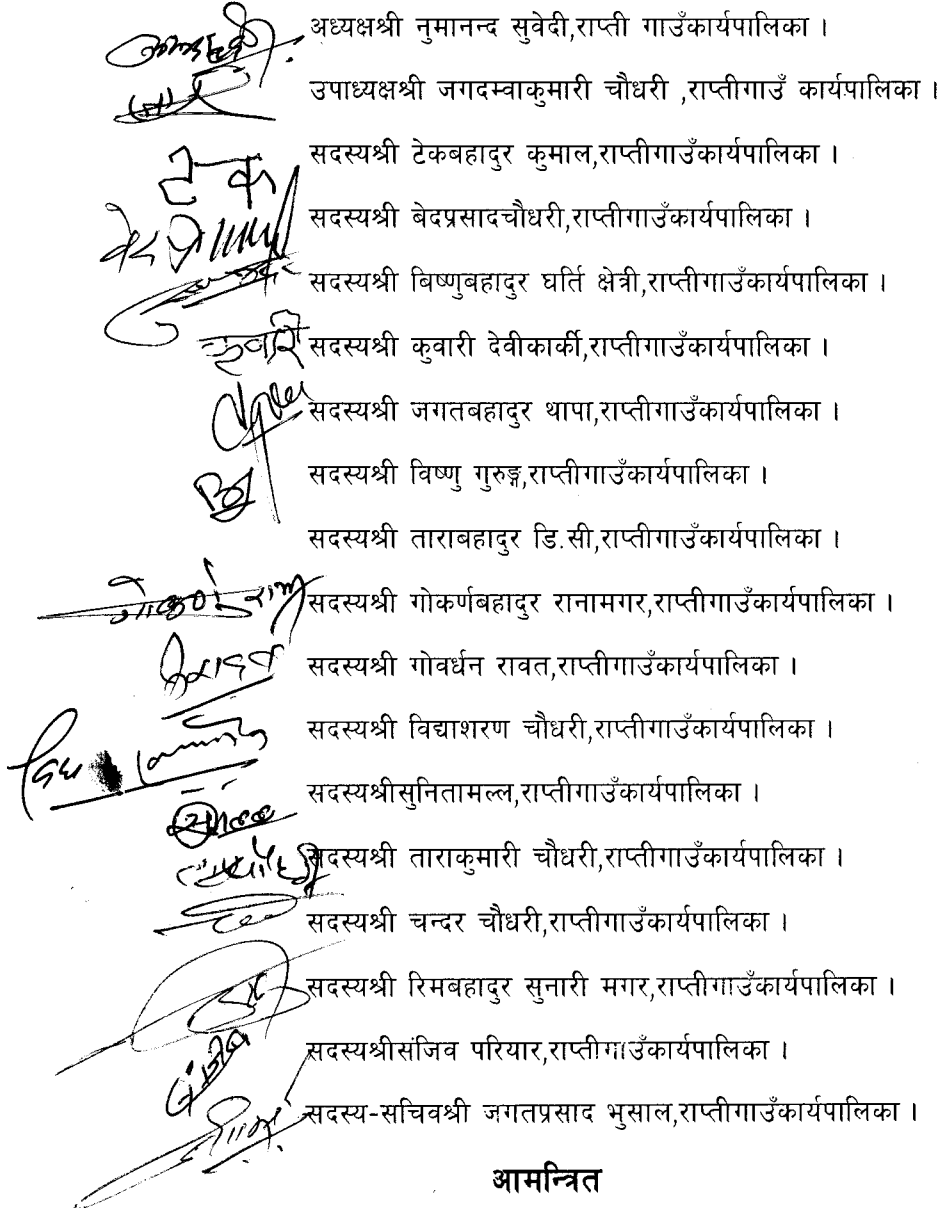 अध्यक्षश्री नुमानन्द सुवेदी,राप्ती गाउँकार्यपालिका ।
उपाध्यक्षश्री जगदम्वाकुमारी चौधरी ,राप्तीगाउँ कार्यपालिका ।
सदस्यश्री टेकबहादुर कुमाल,राप्तीगाउँकार्यपालिका ।
टेक
सदस्यश्री बेदप्रसादचौधरी,राप्तीगाउँकार्यपालिका ।
सदस्यश्री बिष्णुबहादुर घर्ति क्षेत्री,राप्तीगाउँकार्यपालिका ।
कुवारी सदस्यश्री कुवारी देवीकार्की,राप्तीगाउँकार्यपालिका ।
सदस्यश्री जगतबहादुर थापा,राप्तीगाउँकार्यपालिका ।
सदस्यश्री विष्णु गुरुङ्ग,राप्तीगाउँकार्यपालिका ।
सदस्यश्री ताराबहादुर डि.सी,राप्तीगाउँकार्यपालिका ।
सदस्यश्री गोकर्णबहादुर रानामगर,राप्तीगाउँकार्यपालिका ।
सदस्यश्री गोवर्धन रावत,राप्तीगाउँकार्यपालिका ।
सदस्यश्री विद्याशरण चौधरी,राप्तीगाउँकार्यपालिका ।
सदस्यश्रीसुनितामल्ल,राप्तीगाउँकार्यपालिका ।
सदस्यश्री ताराकुमारी चौधरी,राप्तीगाउँकार्यपालिका ।
सदस्यश्री चन्दर चौधरी,राप्तीगाउँकार्यपालिका ।
सदस्यश्री रिमबहादुर सुनारी मगर,राप्तीगाउँकार्यपालिका ।
सदस्यश्रीसंजिव परियार,राप्तीगाउँकार्यपालिका ।
सदस्य-सचिवश्री जगतप्रसाद भुसाल,राप्तीगाउँकार्यपालिका ।
आमन्त्रित